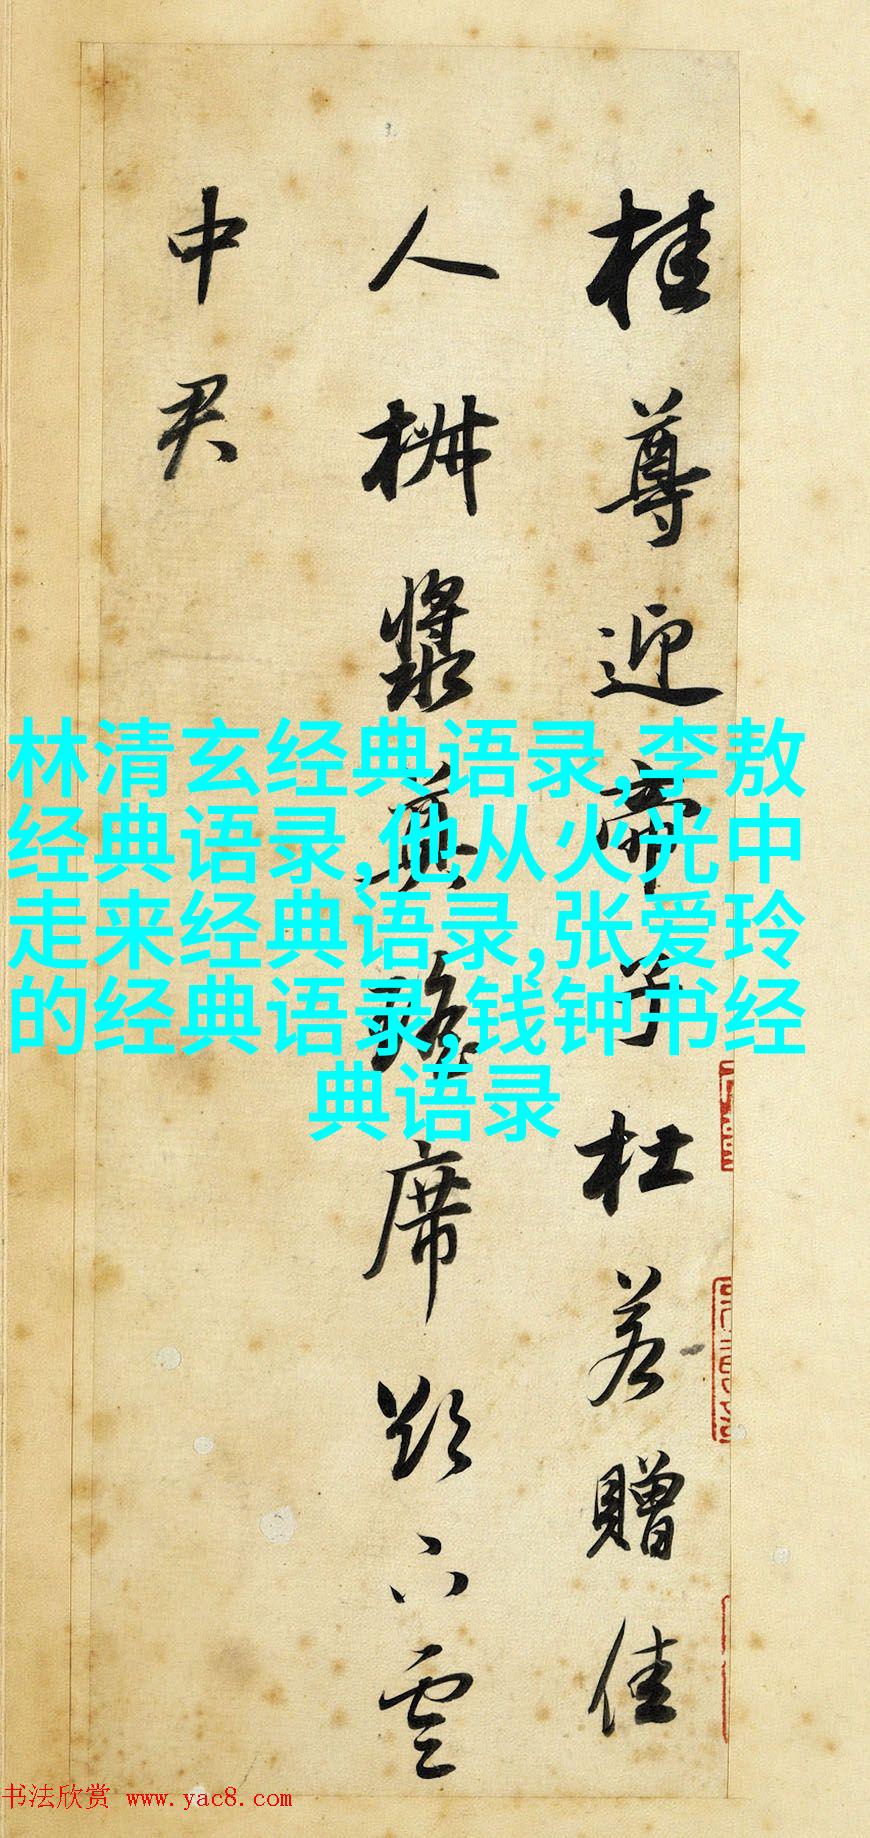 桂尊迎帝子杜若贈佳
人椒漿奠瑤席欲下雲
中君
林清玄经典语录,李敖
经典语录,他从火光中
走来经典语录,张爱玲
的经典语录,钱钟书经
典语录
书法欣赏 www.yac8.com